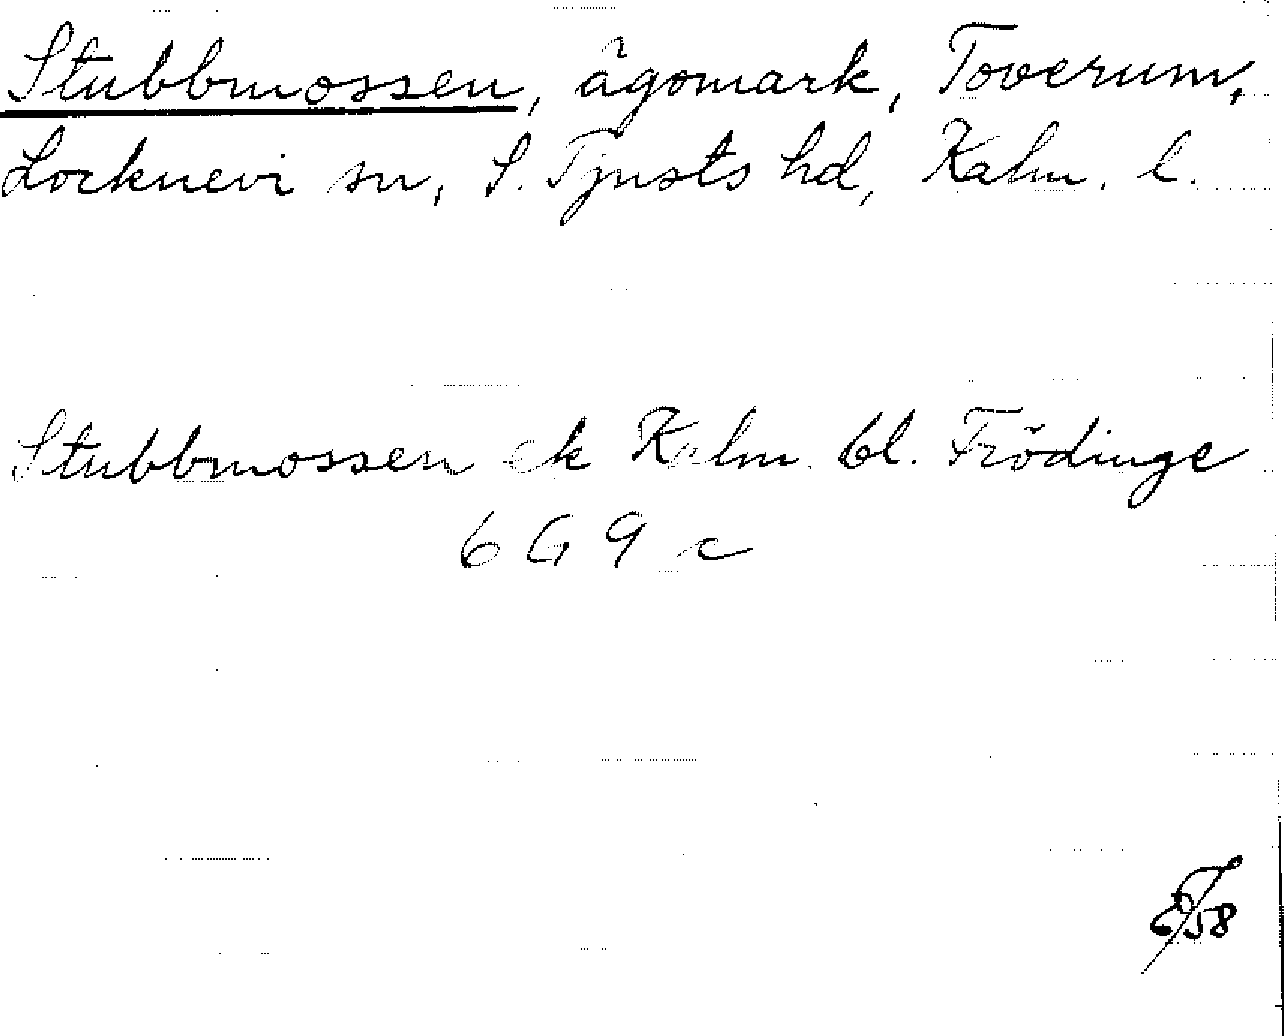 Stubbmossen, ägomark, Toverum,
Locknevi sn, S. Tjusts hd, Kalm. l.
Stubbmossen ek Kalm. bl. Frödinge
6 G 9 c
58